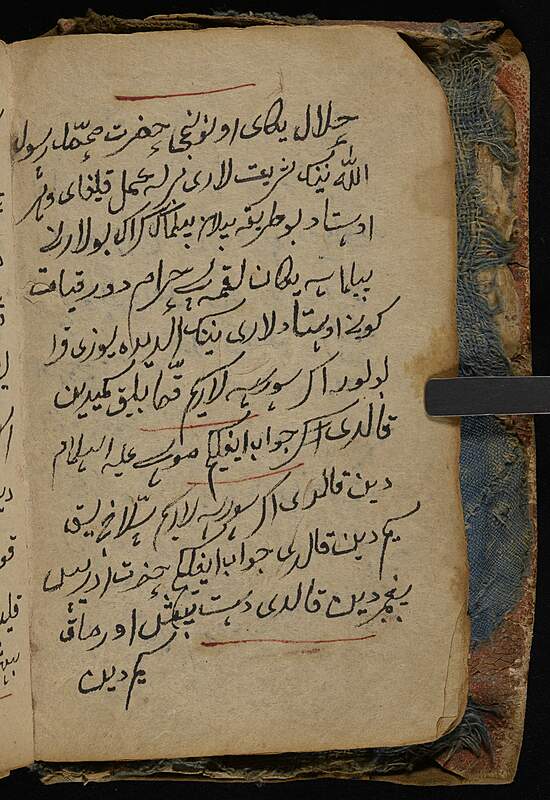 حلال یکای اوتونجی حضرت محمّد رسول
اللّٰه نینک شریعت لاری برله عمل قیلغای و هر
اوستاد بو طریقه بیلان بیلماک کراک بولارنی
بیلماسه یکان لقمه سی حرام دور قیامت
کونی اوستاد لاری نینک الدیده یوزی قرا
بولور اکر سورسه لاریم قمّا بلیق کمیدین
قالدی اکر جواب ایغیلکیم موسی علیه السلام
دین قالدی اکر سورسه لاریم سلّاخ لیق
کیم دین قالدی جواب ایغیلکیم حضرت ادریس
پیغمبر دین قالدی دست اورماق
کیم دین